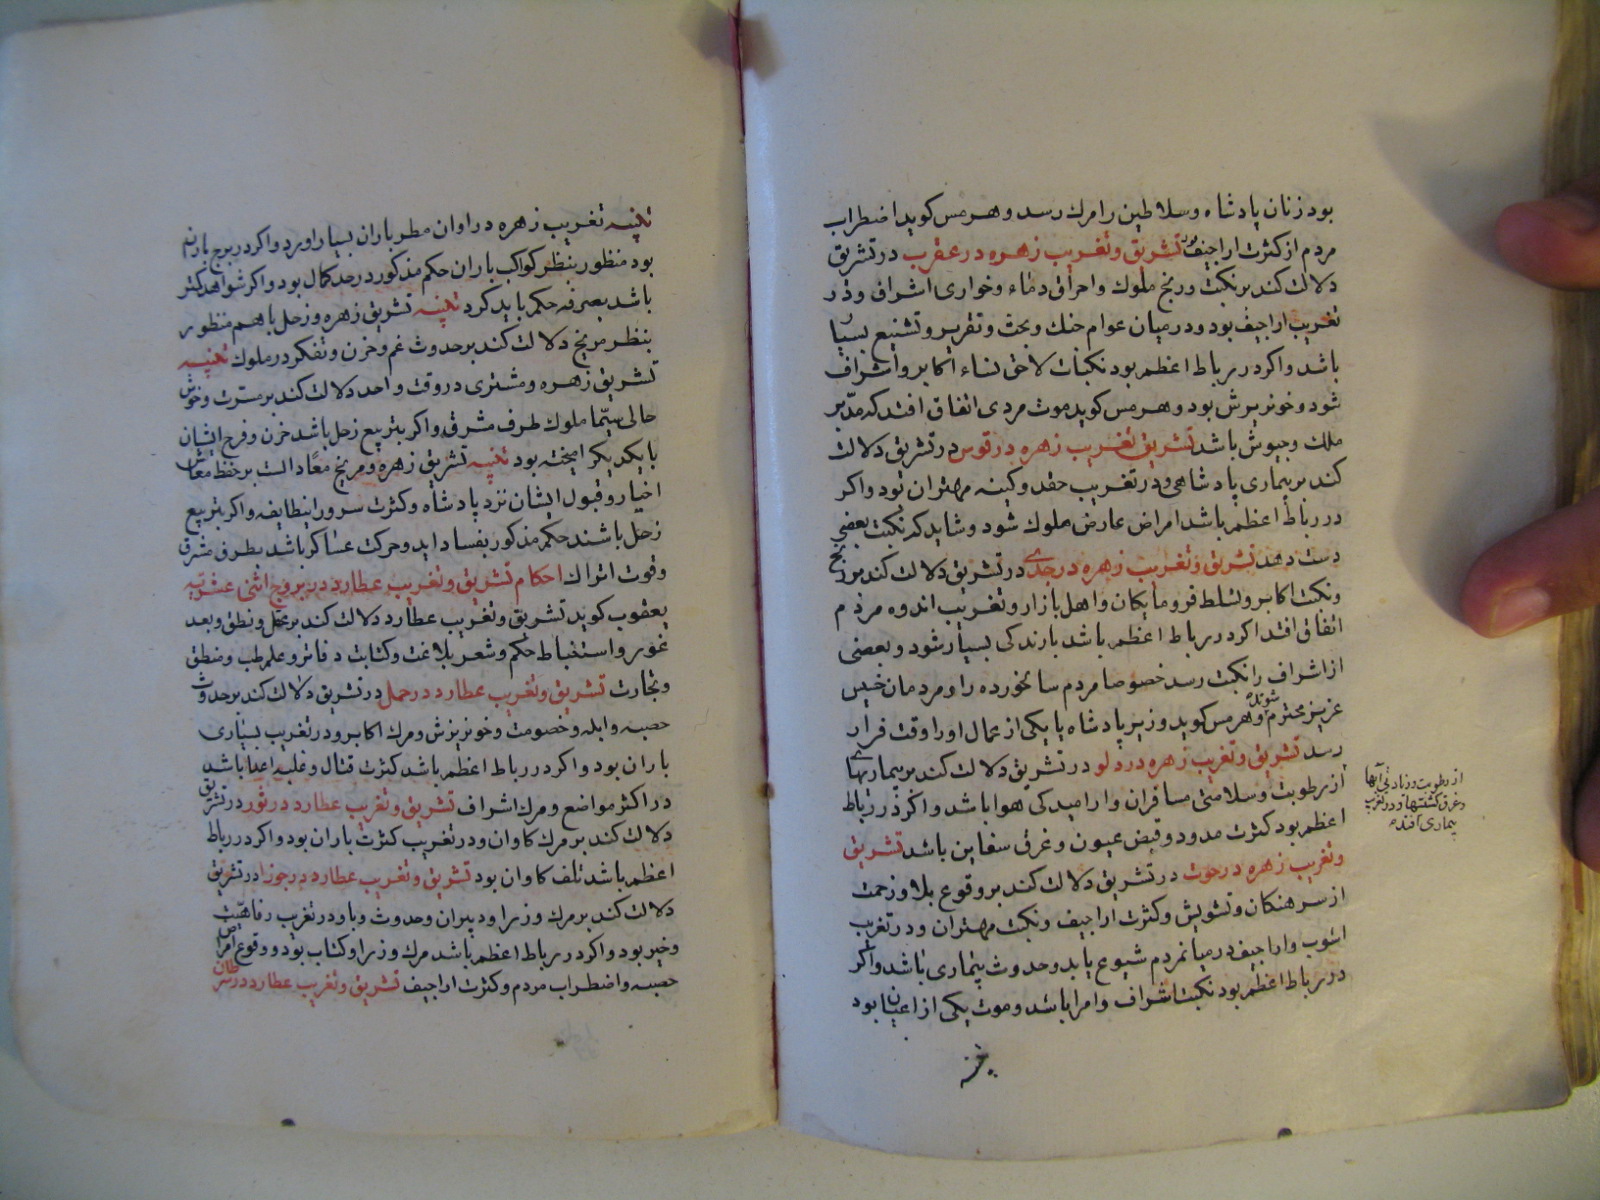 بود زنان پادشاه وسلاطین را مرك رسد و هرمس كوید اضطراب
مردم از كثرت اراجیف بود تشریق وتغریب زهره در عقرب در تشریق
دلالت كند بر نكبت ورنج ملوك واحراق دماء وخواری اشراف ودر
تغریب اراجیف بود و در میان عوام جنك وبحث وتقریر وتشنیع بسیار
باشد واكر در رباط اعظم بود نكبات لاحق نساء اكابر واشراف
شود وخونریزش بود وهرمس كوید موت مردی اتفاق افتد كه مدبر
ملك وجیوش باشد تشریق تغریب زهره در قوس در تشریق دلالت
كند بر بیماری پادشاهی ودر تغریب حقد وكینه مهتران بود واكر
در رباط اعظم باشد امراض عارض ملوك شود وشاید كه نكبت بعضی
دست دهد تشریق وتغریب زهره در جدی در تشریق دلالت كند بر رنج
ونكبت اكابر وتسلط فرومایكان واهل بازار و تغریب اندوه مردم
اتفاق افتد اكر در رباط اعظم باشد بارندكی بسیار شود وبعضی
از اشراف را نكبت رسد خصوصا مردم سالخورده را ومردمان خسیس
عزیز محترم شوند وهرمس كوید وزیر پادشاه یا یكی از عمال او را وقت فرار
رسد تشریق وتغریب زهره در دلو در تشریق دلالت كند بر بیماریهای
از رطوبت وسلامتی مسافران وارامیدكی هوا باشد واكر در رباط
اعظم بود كثرت مدود وفیض عیون وغرق سفاین باشد تشریق
وتغریب زهره در حوت در تشریق دلالت كند بر وقوع بلا وزحمت
از سرهنكان وتشویش وكثرت اراجیف ونكبت مهتران ودر تغریب
اشوب واراجیف در میان مردم شیوع یابد وحدوث بیماری باشد واكر
در رباط اعظم بود نكبت اشراف وامرا باشد وموت یكی از اعیان بود
از رطوبت وزیادتی آبها
وغرق كشتیها ودر تغریب
بیماری افتد
تنبیه
تنبیه تغریب زهره در اوان مطر باران بسیار اورد واكر در برج بارانی
بود منظور بنظر كواكب باران حكم مذكور در حد كمال بود واكر شواهد كمتر
باشد بصرفه حكم باید كرد تنبیه تشریق زهره وزحل باهم منظور
بنظر مریخ دلالت كند بر حدوث غم وحزن وتفكر در ملوك تنبیه
تشریق زهره ومشتری در وقت واحد دلالت كند بر مسرت وخوش
حالی سیما ملوك طرف مشرق واكر بتربیع زحل باشد حزن وفرح ایشان
با یكدیكر امیخته بود تنبیه تشریق زهره ومریخ معا دالست بر حفظ معاش
اخیار وقبول ایشان نزد پادشاه وكثرت سرور اینطایفه واكر بتربیع
زحل باشند حكم مذكور بفساد اید وحركت عساكر باشد بطرف مشرق
وقوت اتراك احكام تشریق وتغریب عطارد در بروج اثنی عشریه
یعقوب كوید تشریق وتغریب عطارد دلالت كند بر عقل ونطق وبعد
غور واستنباط حكم وشعر بلاغت وكتابت دفاتر وعلم طب ومنطق
وتجارت تشریق وتغریب عطارد در حمل در تشریق دلالت كند بر حدوث
حصبه وابله وخصومت وخونریزش ومرك اكابر ودر تغریب بسیاری
باران بود واكر در رباط اعظم باشد كثرت قتال وغلبه اعدا باشد
در اكثر مواضع ومرك اشراف تشریق وتغریب عطارد در ثور در تشریق
دلالت كند بر مرك كاوان ودر تغریب كثرت باران بود واكر در رباط
اعظم باشد تلف كاوان بود تشریق وتغریب عطارد در جوزا در تشریق
دلالت كند بر مرك وزرا ودبیران وحدوث وبا ودر تغریب رفاهیت
وخیر بود واكر در رباط اعظم باشد مرك وزرا وكتاب بود ووقوع امراض
حصبه واضطراب مردم وكثرت اراجیف تشریق وتغریب عطارد در سرطان